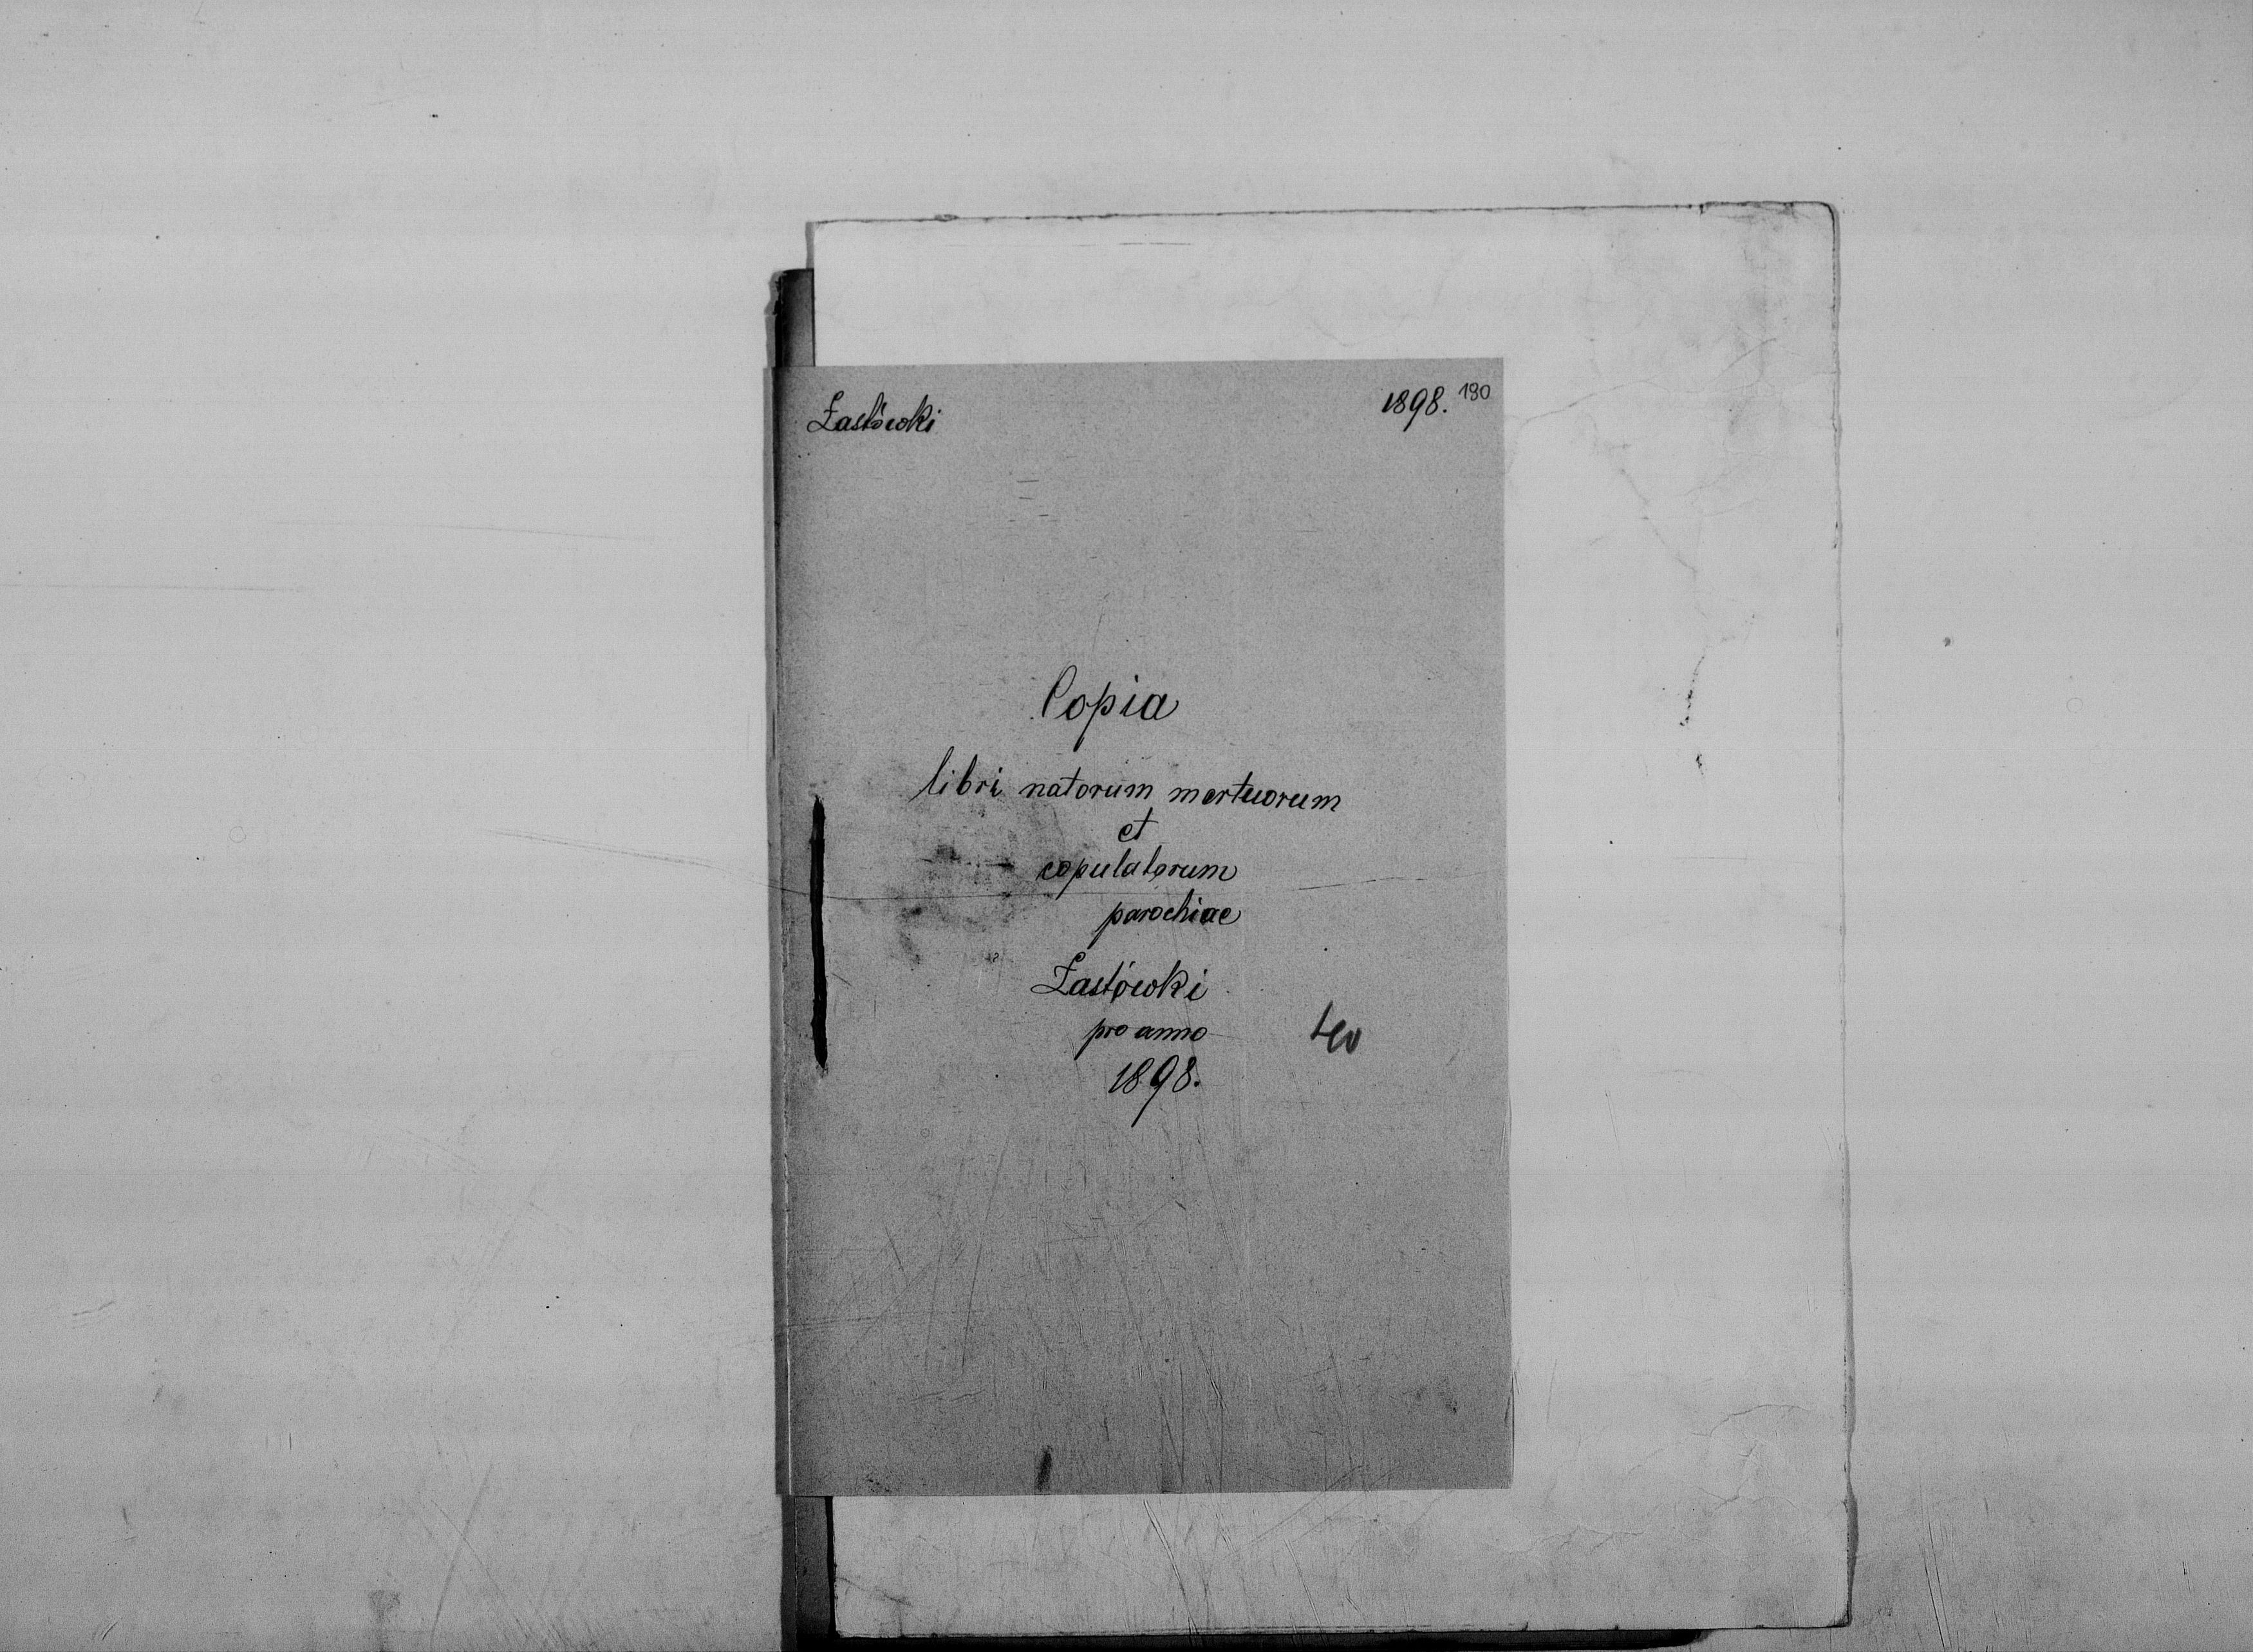 Zastówki
1898. 190
Copia
libri natorum, mortuorum
et
copulatorum
parochiae
Zastówki
pro anno
1898.